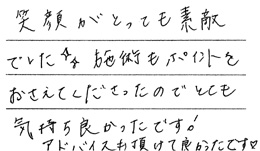 笑顔がとっても素敵
でした✨施術もポイントを
おさえてくださったのでとても
気持ち良かったです!
アドバイスも頂けて良かったです♡